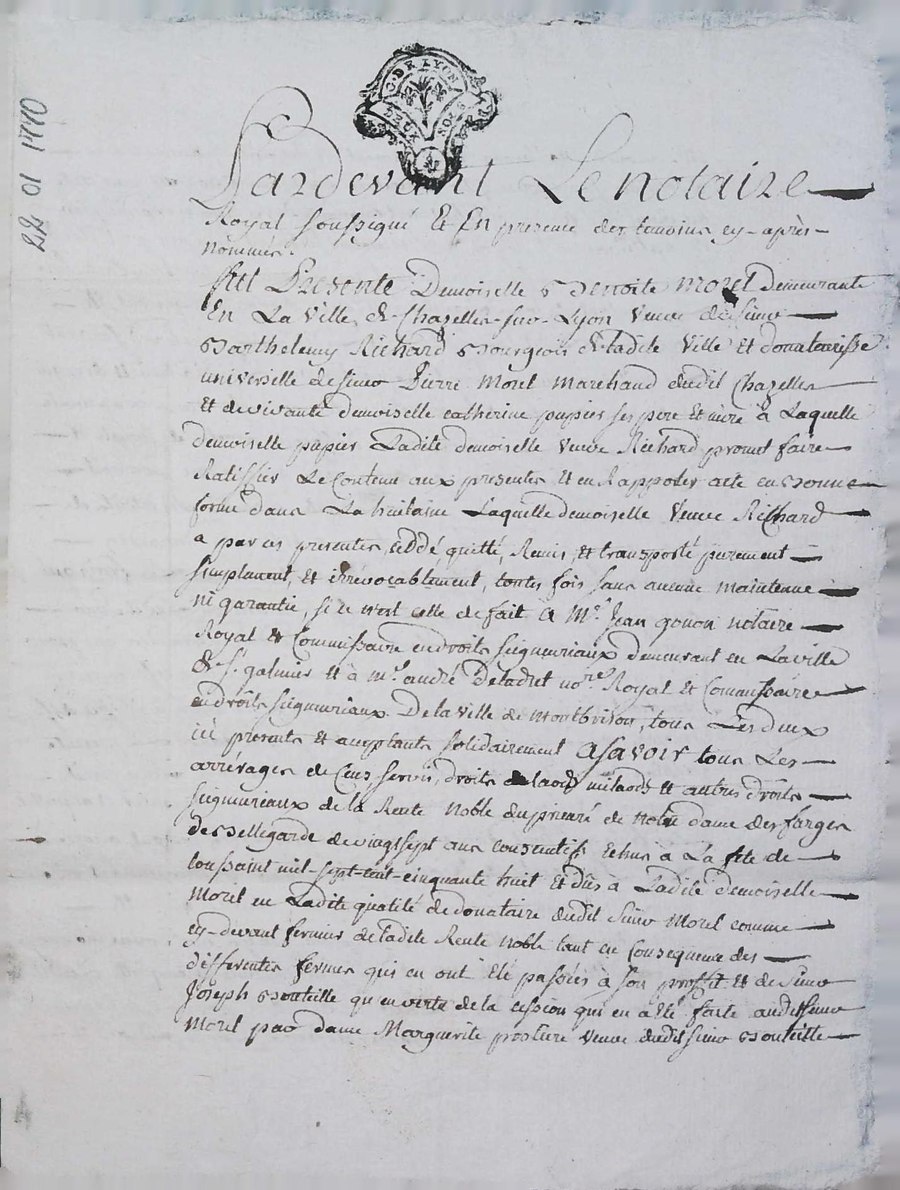 22 01 1770
G. DE LYON
DEUX SOLS
Pardevant Le notaire
Royal soussigné Et En presence des temoins cy-après
nommés.
fut Presente Demoiselle Benoite Morel demeurante
En La Ville de Chazelles-sur-Lyon Veuve de Sieur
Barthelemy Richard Bourgeois de ladite Ville et donatairesse
universelle de sieur Pierre Morel Marchand dudit Chazelles
Et de vivante demoiselle catherine pupier ses pere Et mere à Laquelle
demoiselle pupier Ladite demoiselle Veuve Richard promet faire
Ratiffier Le Contenu aux presentes Et en Rapporter acte en Bonne
forme dans La huitaine Laquelle demoiselle Veuve Richard
a par ces presentes, ceddé, quitté, Remis, et transporté purement
simplement, et irrévocablement, toutes fois sans aucune maintenue
ni garantie, si ce n'est celle de fait a Mr. Jean gonon notaire
Royal Et Commissaire en droits seigneuriaux demeurant en La ville
de St. galmier et à Mr. andré Deladret nore. Royal Et Commissaire
en droits seigneuriaux De la Ville de Montbrison, tous Les deux
ici presents et acceptants solidairement asavoir tous Les
arrérages de Cens servis, droits de laods milaods et autres droits
seigneuriaux de la Rente Noble du prieuré de notre dame des farges
de Bellegarde de vingt sept ans consecutifs Echus à La fete de
toussaint mil-sept-cent-cinquante huit Et dûs à Ladite demoiselle
Morel en Ladite qualité de donataire dudit sieur Morel comme
cy-devant fermier de ladite Rente noble tant en Consequence des
differentes fermes qui en ont Eté passées à son proffit Et de sieur
Joseph Bouteille qu'en vertu de la cession qui en a Eté faite audit sieur
Morel par dame Marguerite Veuve dudit sieur Bouteille